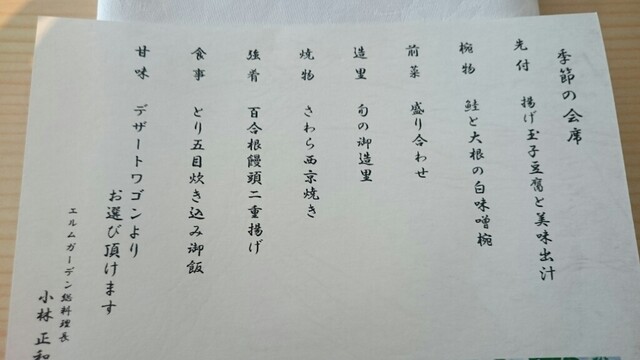 季節の会席
先付 揚げ玉子豆腐と美味出汁
椀物 鮭と大根の白味噌椀
前菜 盛り合わせ
造里 旬の御造里
焼物 さわら西京焼き
強肴 百合根饅頭二重揚げ
食事 とり五目炊き込み御飯
甘味 デザートワゴンより
お選び頂けます
エルムガーデン総料理長
小林 正和